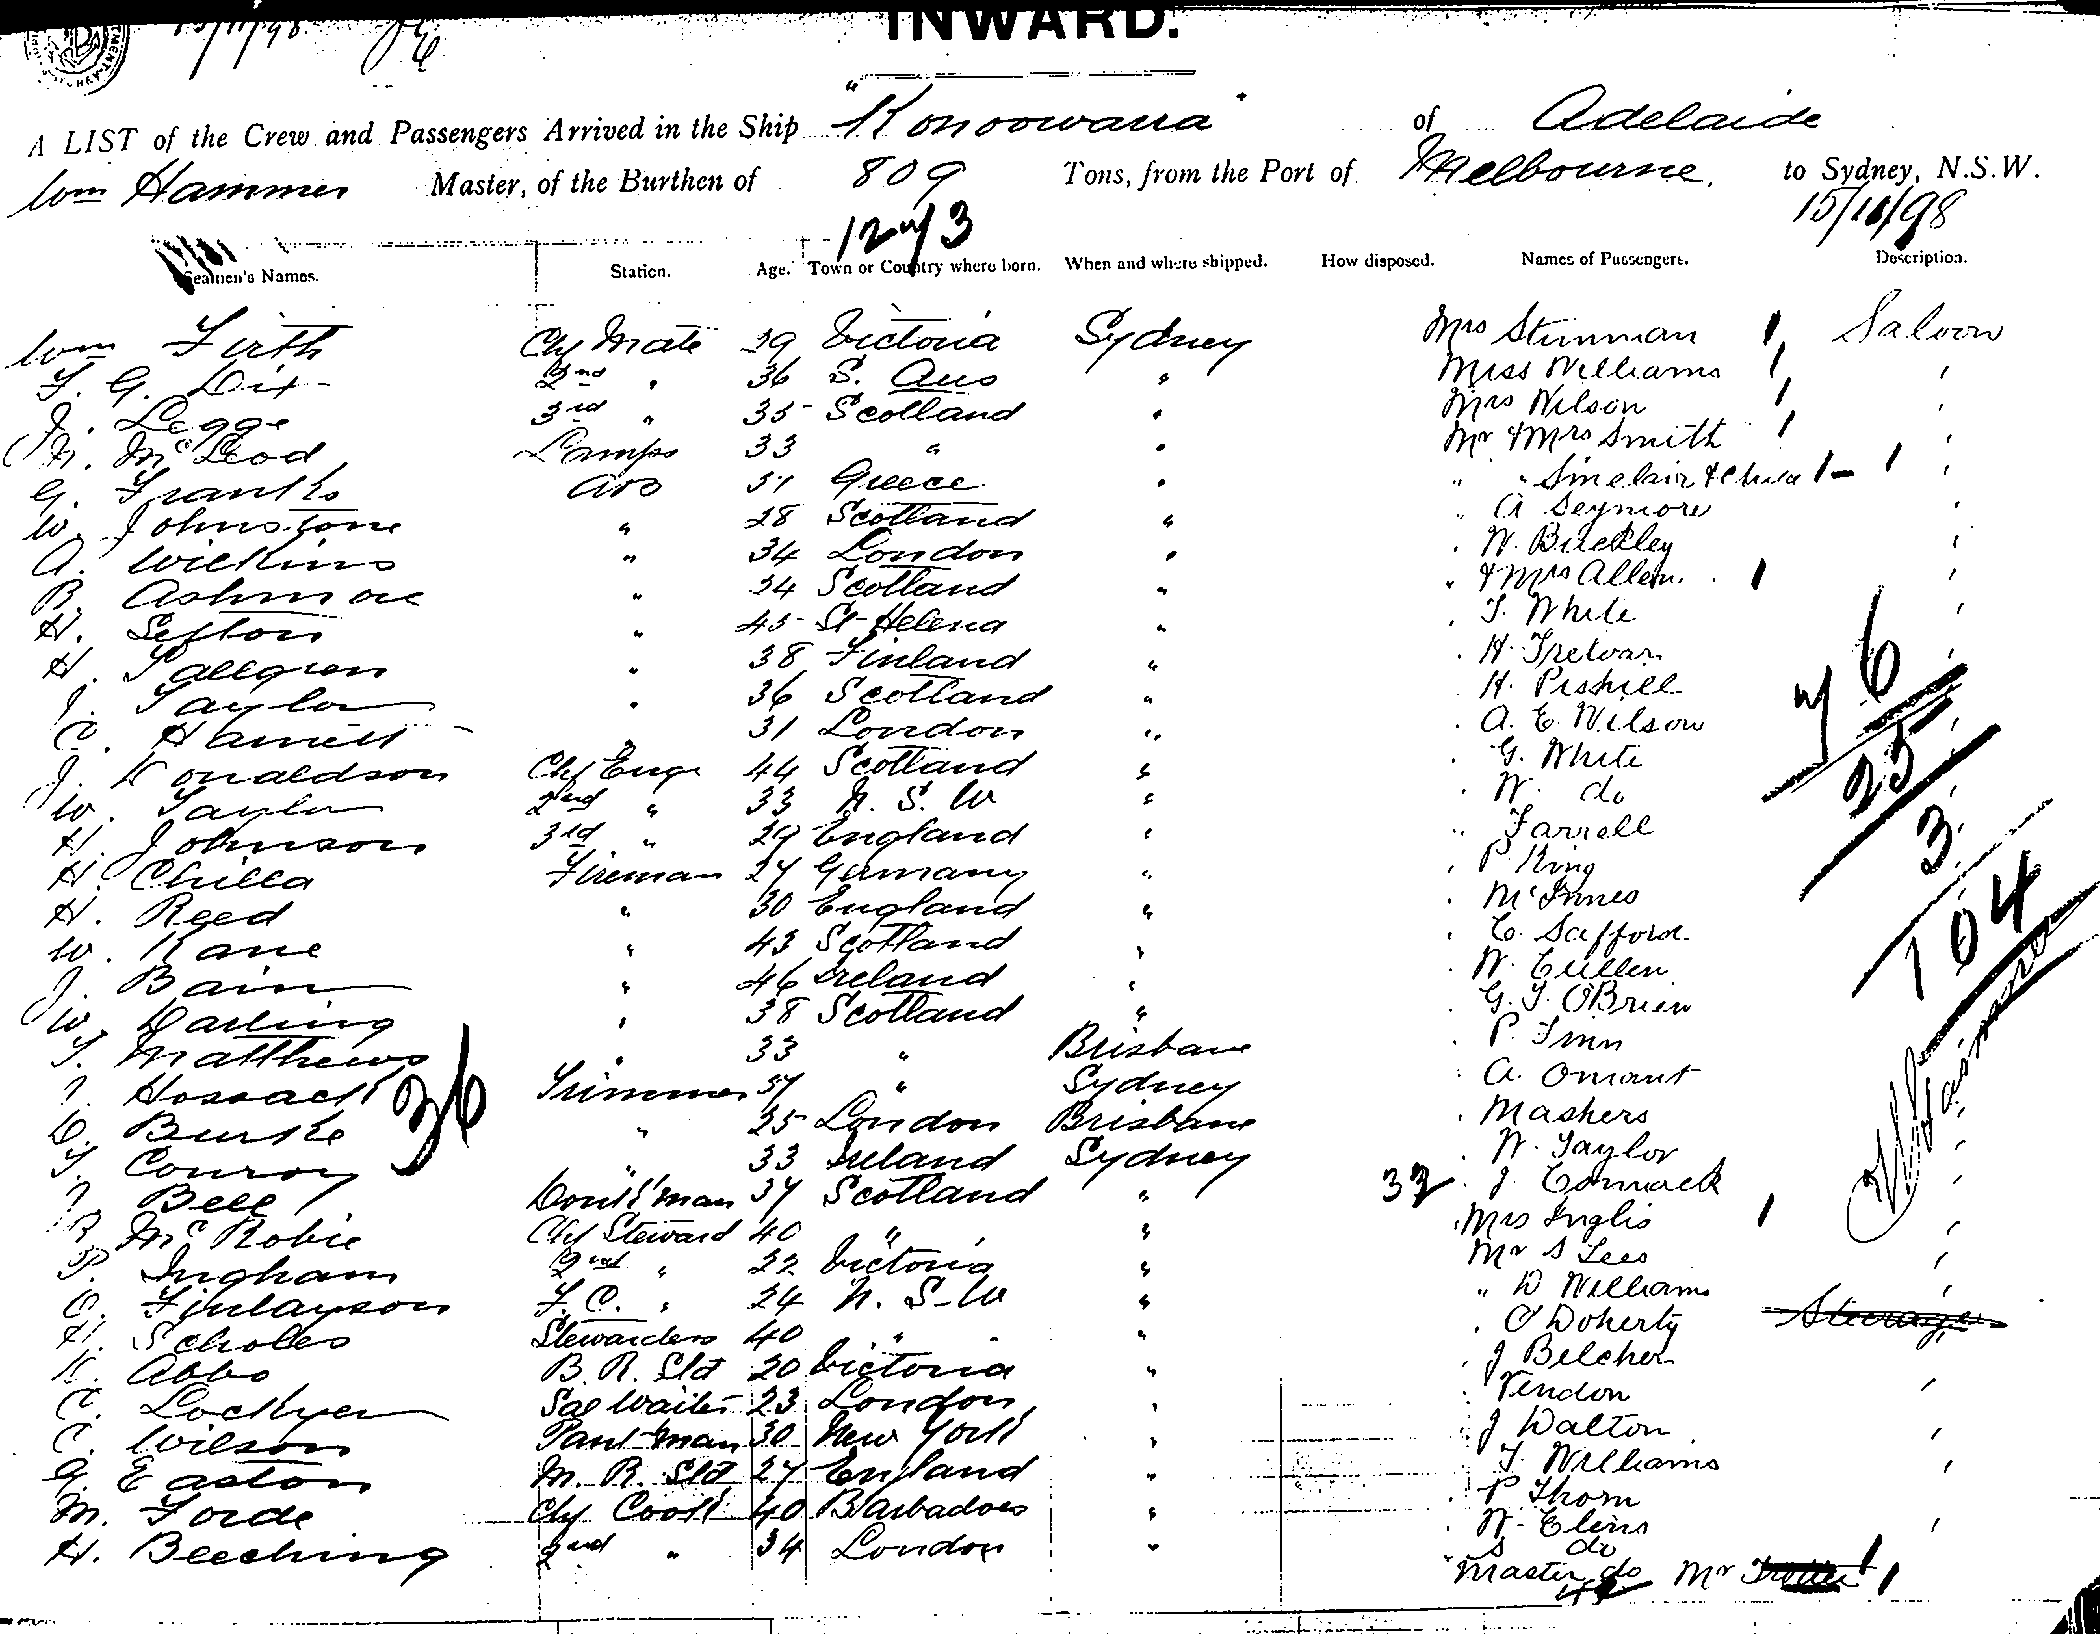 INWARD.
15/11/98
A LIST of the Crew and Passengers Arrived in the Ship "Konoowarra" of Adelaide
Wm Hammer Master, of the Burthen of 809 Tons, from the Port of Melbourne, to Sydney, N.S.W.
15/11/98
Seamen's Names. Station. Age. Town or Country where born. When and where shipped. How disposed. Names of Passengers. Description.
Wm Firth Chf Mate 29 Victoria Sydney Mrs Stinman 1 Saloon
F. G. Dix 2nd " 36 S. Aus " Miss Williams 1 "
J. Legge 3rd " 35 Scotland " Mrs Wilson 1 "
N. McLeod Lamps 33 " " Mr & Mrs Smith 1 "
G. Franks AB 31 Greece " " " Sinclair & Child 1 - 1 "
W. Johnstone " 28 Scotland " " A Seymore "
A. Wilkins " 34 London " " W. Buckley "
B. Ashmore " 34 Scotland " " & Mrs Allen. 1 "
H. Sefton " 45 St Helena " " T. White "
H. Sallgren " 38 Finland " " H. Trelvar "
J. Taylor " 36 Scotland " " H. "
C. Hamett " 31 London " " A. E. Wilson "
J. Donaldson Chf Engr 44 Scotland " " G. White "
W. Taylor 2nd " 33 N. S. W " " W. do "
H. Johnson 3rd " 29 England " " Farrell "
H. Chilla Fireman 27 Germany " " P. King "
H. Reed " 30 England " " McInnes "
W. Kane " 43 Scotland " " C. Safford "
J. Bain " 46 Ireland " " W. Cullen "
W. Darling " 38 Scotland " " G. J. O'Brien "
T. Matthews " 33 " Brisbane " P. Finn "
J. Hossack Trimmer 37 " Sydney " A. Omant "
C. Burke " 25 London Brisbane " Mashers "
T. Conroy " 33 Ireland Sydney " W. Taylor "
J. Bell Donk'man 37 Scotland " 32 " J. Cormack "
R. McRobie Chf Steward 40 " " " Mrs Inglis 1 "
P. Ingham 2nd " 22 Victoria " Mr S Lees "
C. Finlayson F. C. " 24 N. S. W " " D Williams "
H. Scholes Stewardess 40 " " " O'Doherty Steerage
K. Abbs B. R. Std 20 Victoria " " J Belcher
C. Lockyer Sal Waiter 23 London " " Vendon "
C. Wilson Pant-man 30 New York " " J Walton "
G. Easton M. R. Std 27 England " " T. Williams "
M. Forde Chf Cook 40 Barbadoes " " P Thorn
H. Beeching 2nd " 34 London " " W. Clens "
" S do
" Master do Mr 1
36
76
25
3
104